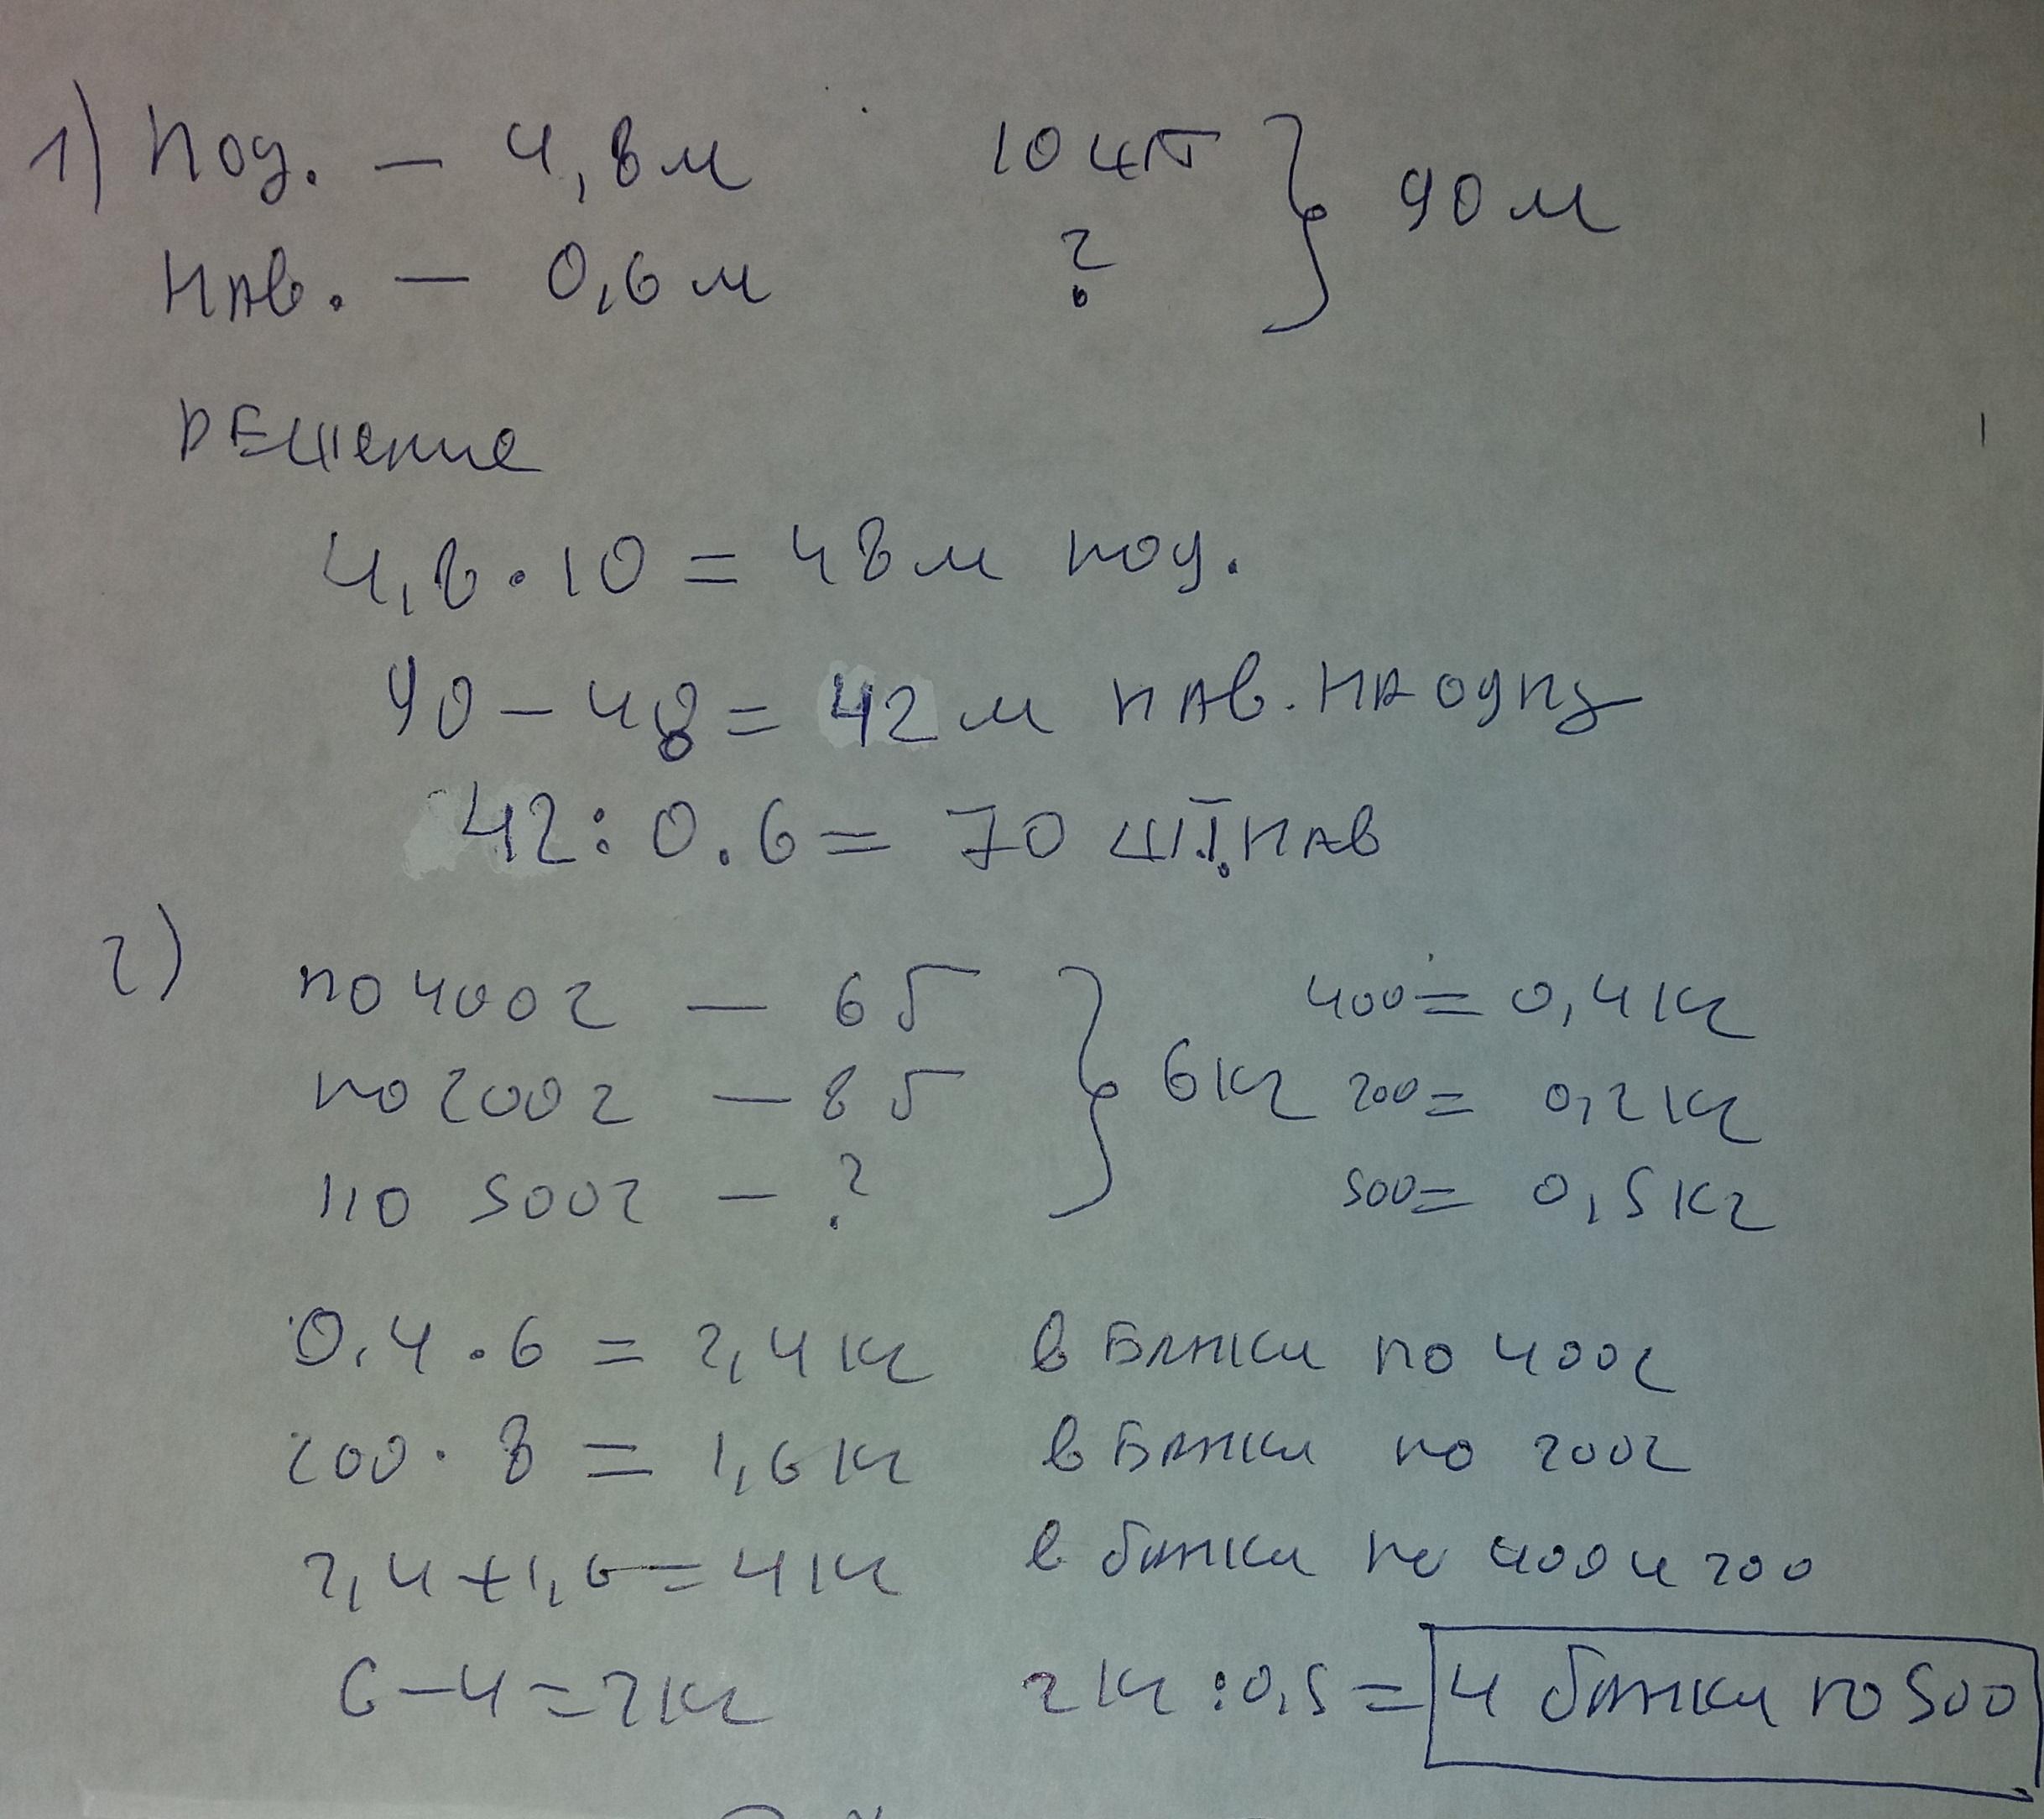 1) Под. – 4,8 м 10 шт } 90 м
Нав. – 0,6 м ?
Решение
4,8 · 10 = 48 м под.
90 – 48 = 42 м нав. на одну
42 : 0.6 = 70 шт. нав
2)
по 400 г – 6 б } 6 кг 400 = 0,4 кг
по 200 г – 8 б 200 = 0,2 кг
по 500 г – ? 500 = 0,5 кг
0,4 · 6 = 2,4 кг в банки по 400 г
200 · 8 = 1,6 кг в банки по 200 г
2,4 + 1,6 = 4 кг в банки по 400 и 200
6 – 4 = 2 кг 2 кг : 0,5 = 4 банки по 500